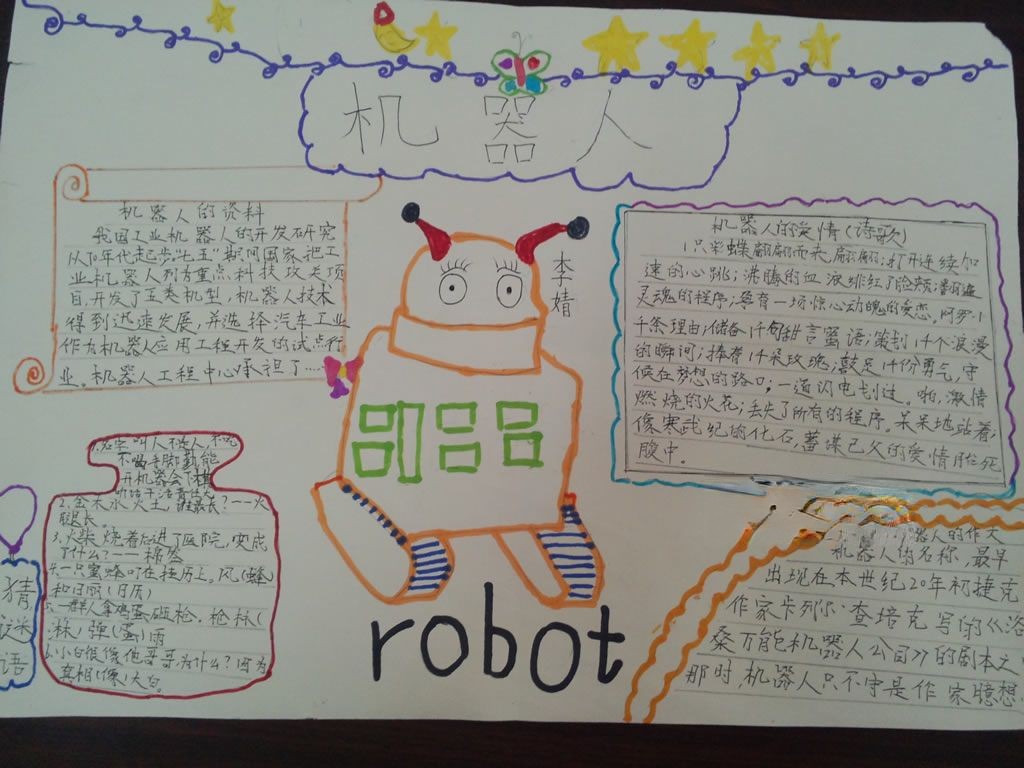 机器人
机器人的资料
我国工业机器人的开发研究
从70年代起步"七五"期间国家把工
业机器人列为重点科技攻关项
目,开发了五类机型,机器人技术
得到迅速发展,并选择汽车工业
作为机器人应用工程开发的试点行
业。机器人工程中心承担了……
李婧
机器人的爱情(诗歌)
1只彩蝶翩翩而来,翩翩;打开连续加
速的心跳;沸腾的血液绯红了脸颊
灵魂的程序;孕育一场惊心动魄的爱恋。阿罗1
千条理由;储备1千句甜言蜜语;策划1千个浪漫
的瞬间;捧着1千朵玫瑰;鼓足1千份勇气,守
候在梦想的路口;一道闪电划过。啪,激情
燃烧的火花;丢失了所有的程序。呆呆地站着;
像寒武纪的化石,蓄谋已久的爱情胎死
腹中。
猜
谜
语
2.金木水火土,谁最长?——火
腿长。
了什么?——棉签
4.一只蜜蜂叮在挂历上,风(蜂)
和日丽(日历)
5.一群人拿鸡蛋砸枪。枪林(
林)弹(蛋)雨
6.小白很像他哥哥,为什么?因为
真相(像)大白。
robot
机器人的名称,最早
出现在本世纪20年初捷克
作家卡列尔·查培克写的《洛
桑万能机器人公司》的剧本之
那时,机器人只不守是作家臆想